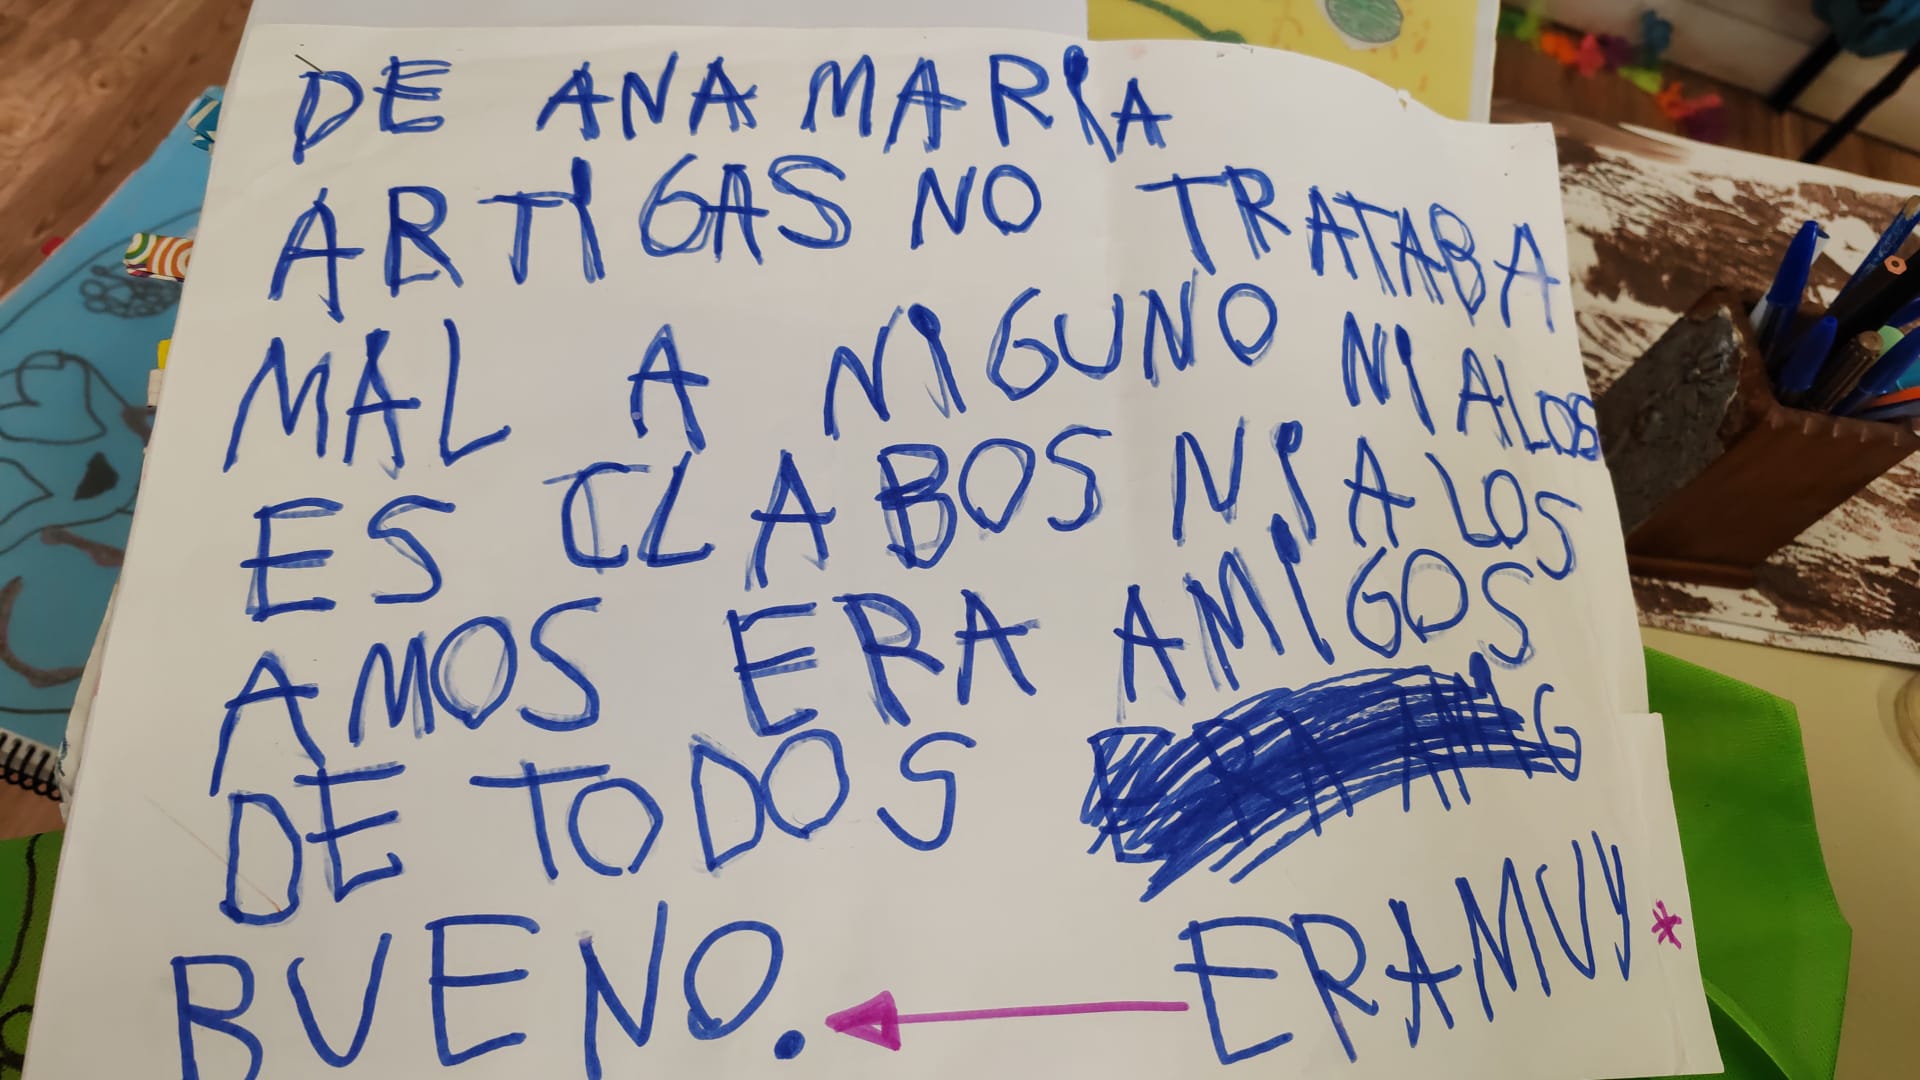 DE ANA MARIA
ARTIGAS NO TRATABA
MAL A NIGUNO NI A LOS
ES CLABOS NI A LOS
AMOS ERA AMIGOS
DE TODOS
ERA MUY *
BUENO.